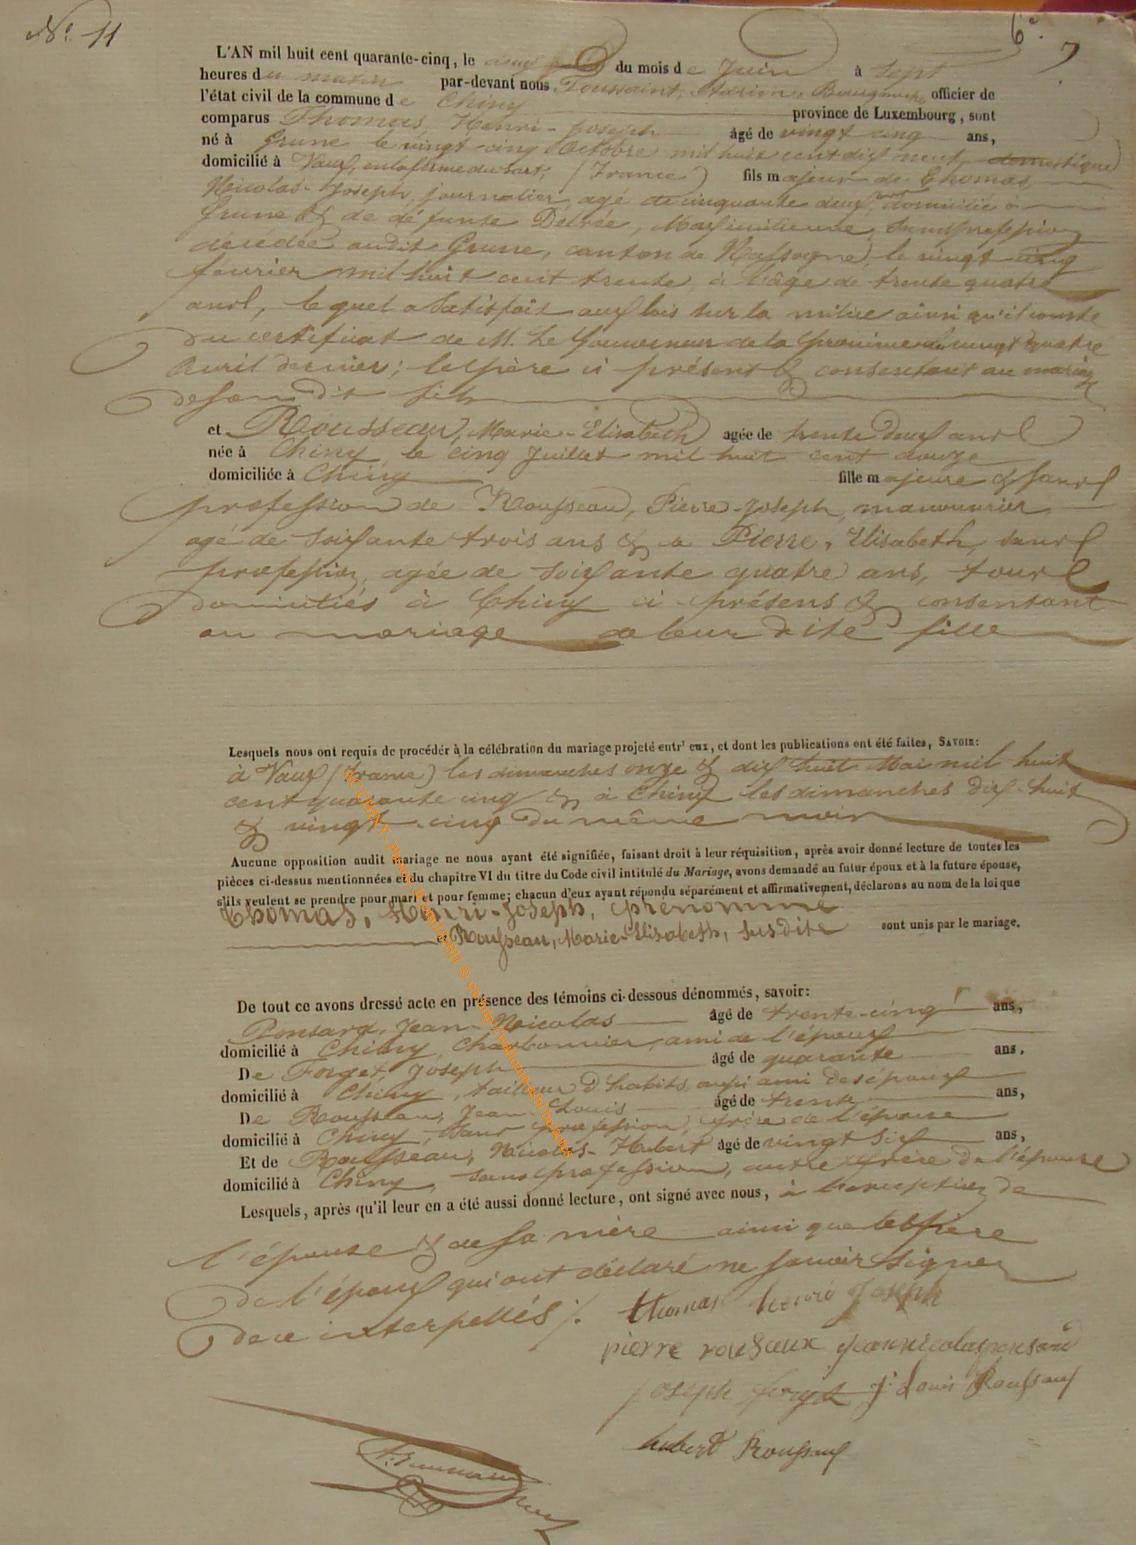 No. 11
6e. 7
L'AN mil huit cent quarante-cinq, le du mois de Juin à Sept
heures du matin par-devant nous Toussaint, officier de
l'état civil de la commune de Chiny province de Luxembourg, sont
comparus Thomas, Henri-Joseph âgé de vingt cinq ans,
né à Grune le vingt-cinq Octobre mil huit cent dix neuf, domestique
domicilié à Vaux, (France) fils majeur de Thomas
Nicolas-Joseph, journalier, agé de cinquante deux ans domicilié à
Grune & de défunte Delrée, Maximilienne, Sans profession
décédée audit Grune, canton de Nassogne, le vingt cinq
fevrier mil huit cent trente, à l'âge de trente quatre
ans, lequel a Satisfait aux lois sur la milice ainsi qu'il conste
du certificat de M. Le Gouverneur de la Province du vingt quatre
Avril dernier; le père ci présent & consentant au mariage
de son dit fils
et Rousseau, Marie-Elisabeth agée de trente deux ans
née à Chiny le cinq Juillet mil huit cent douze
domiciliée à Chiny fille majeure & sans
profession de Rousseau, Pierre-Joseph, manouvrier
agé de Soixante trois ans & a Pierre, Elisabeth, sans
profession, agée de soixante quatre ans, tous
domiciliés à Chiny ci présens & consentant
au mariage de leur dite fille
Lesquels nous ont requis de procéder à la célébration du mariage projeté entr' eux, et dont les publications ont été faites, SAVOIR:
à Vaux (France) les dimanches onze & dix huit Mai mil huit
cent quarante cinq & à Chiny les dimanches dix-huit
& vingt-cinq du même mois
Aucune opposition audit mariage ne nous ayant été signifiée, faisant droit à leur réquisition, après avoir donné lecture de toutes les
pièces ci-dessus mentionnées et du chapitre VI du titre du Code civil intitulé du Mariage, avons demandé au futur époux et à la future épouse,
s'ils veulent se prendre pour mari et pour femme; chacun d'eux ayant répondu séparément et affirmativement, déclarons au nom de la loi que
Thomas, Henri-Joseph, prénommé
et Rousseau, Marie-Elisabeth, susdite sont unis par le mariage.
De tout ce avons dressé acte en présence des témoins ci-dessous dénommés, savoir:
Ponsard, Jean-Nicolas âgé de trente-cinq ans,
domicilié à Chiny, Charbonnier, ami de l'époux
De Forget, Joseph âgé de quarante ans,
domicilié à Chiny, tailleur d'habits, aussi ami des époux
De Rousseau, Jean-Louis âgé de trente ans,
domicilié à Chiny, Sans profession, frère de l'épouse
Et de Rousseau, Nicolas-Hubert âgé de vingt six ans,
domicilié à Chiny, sans profession, autre frère de l'épouse
Lesquels, après qu'il leur en a été aussi donné lecture, ont signé avec nous, à l'exception de
l'épouse & de sa mère ainsi que le père
de l'époux qui ont déclaré ne savoir signer
de ce interpellés /.
thomas henri Joseph
pierre rousaux jean nicolas ponsard
joseph forget J. Louis Rousseaux
hubert Rousseaux